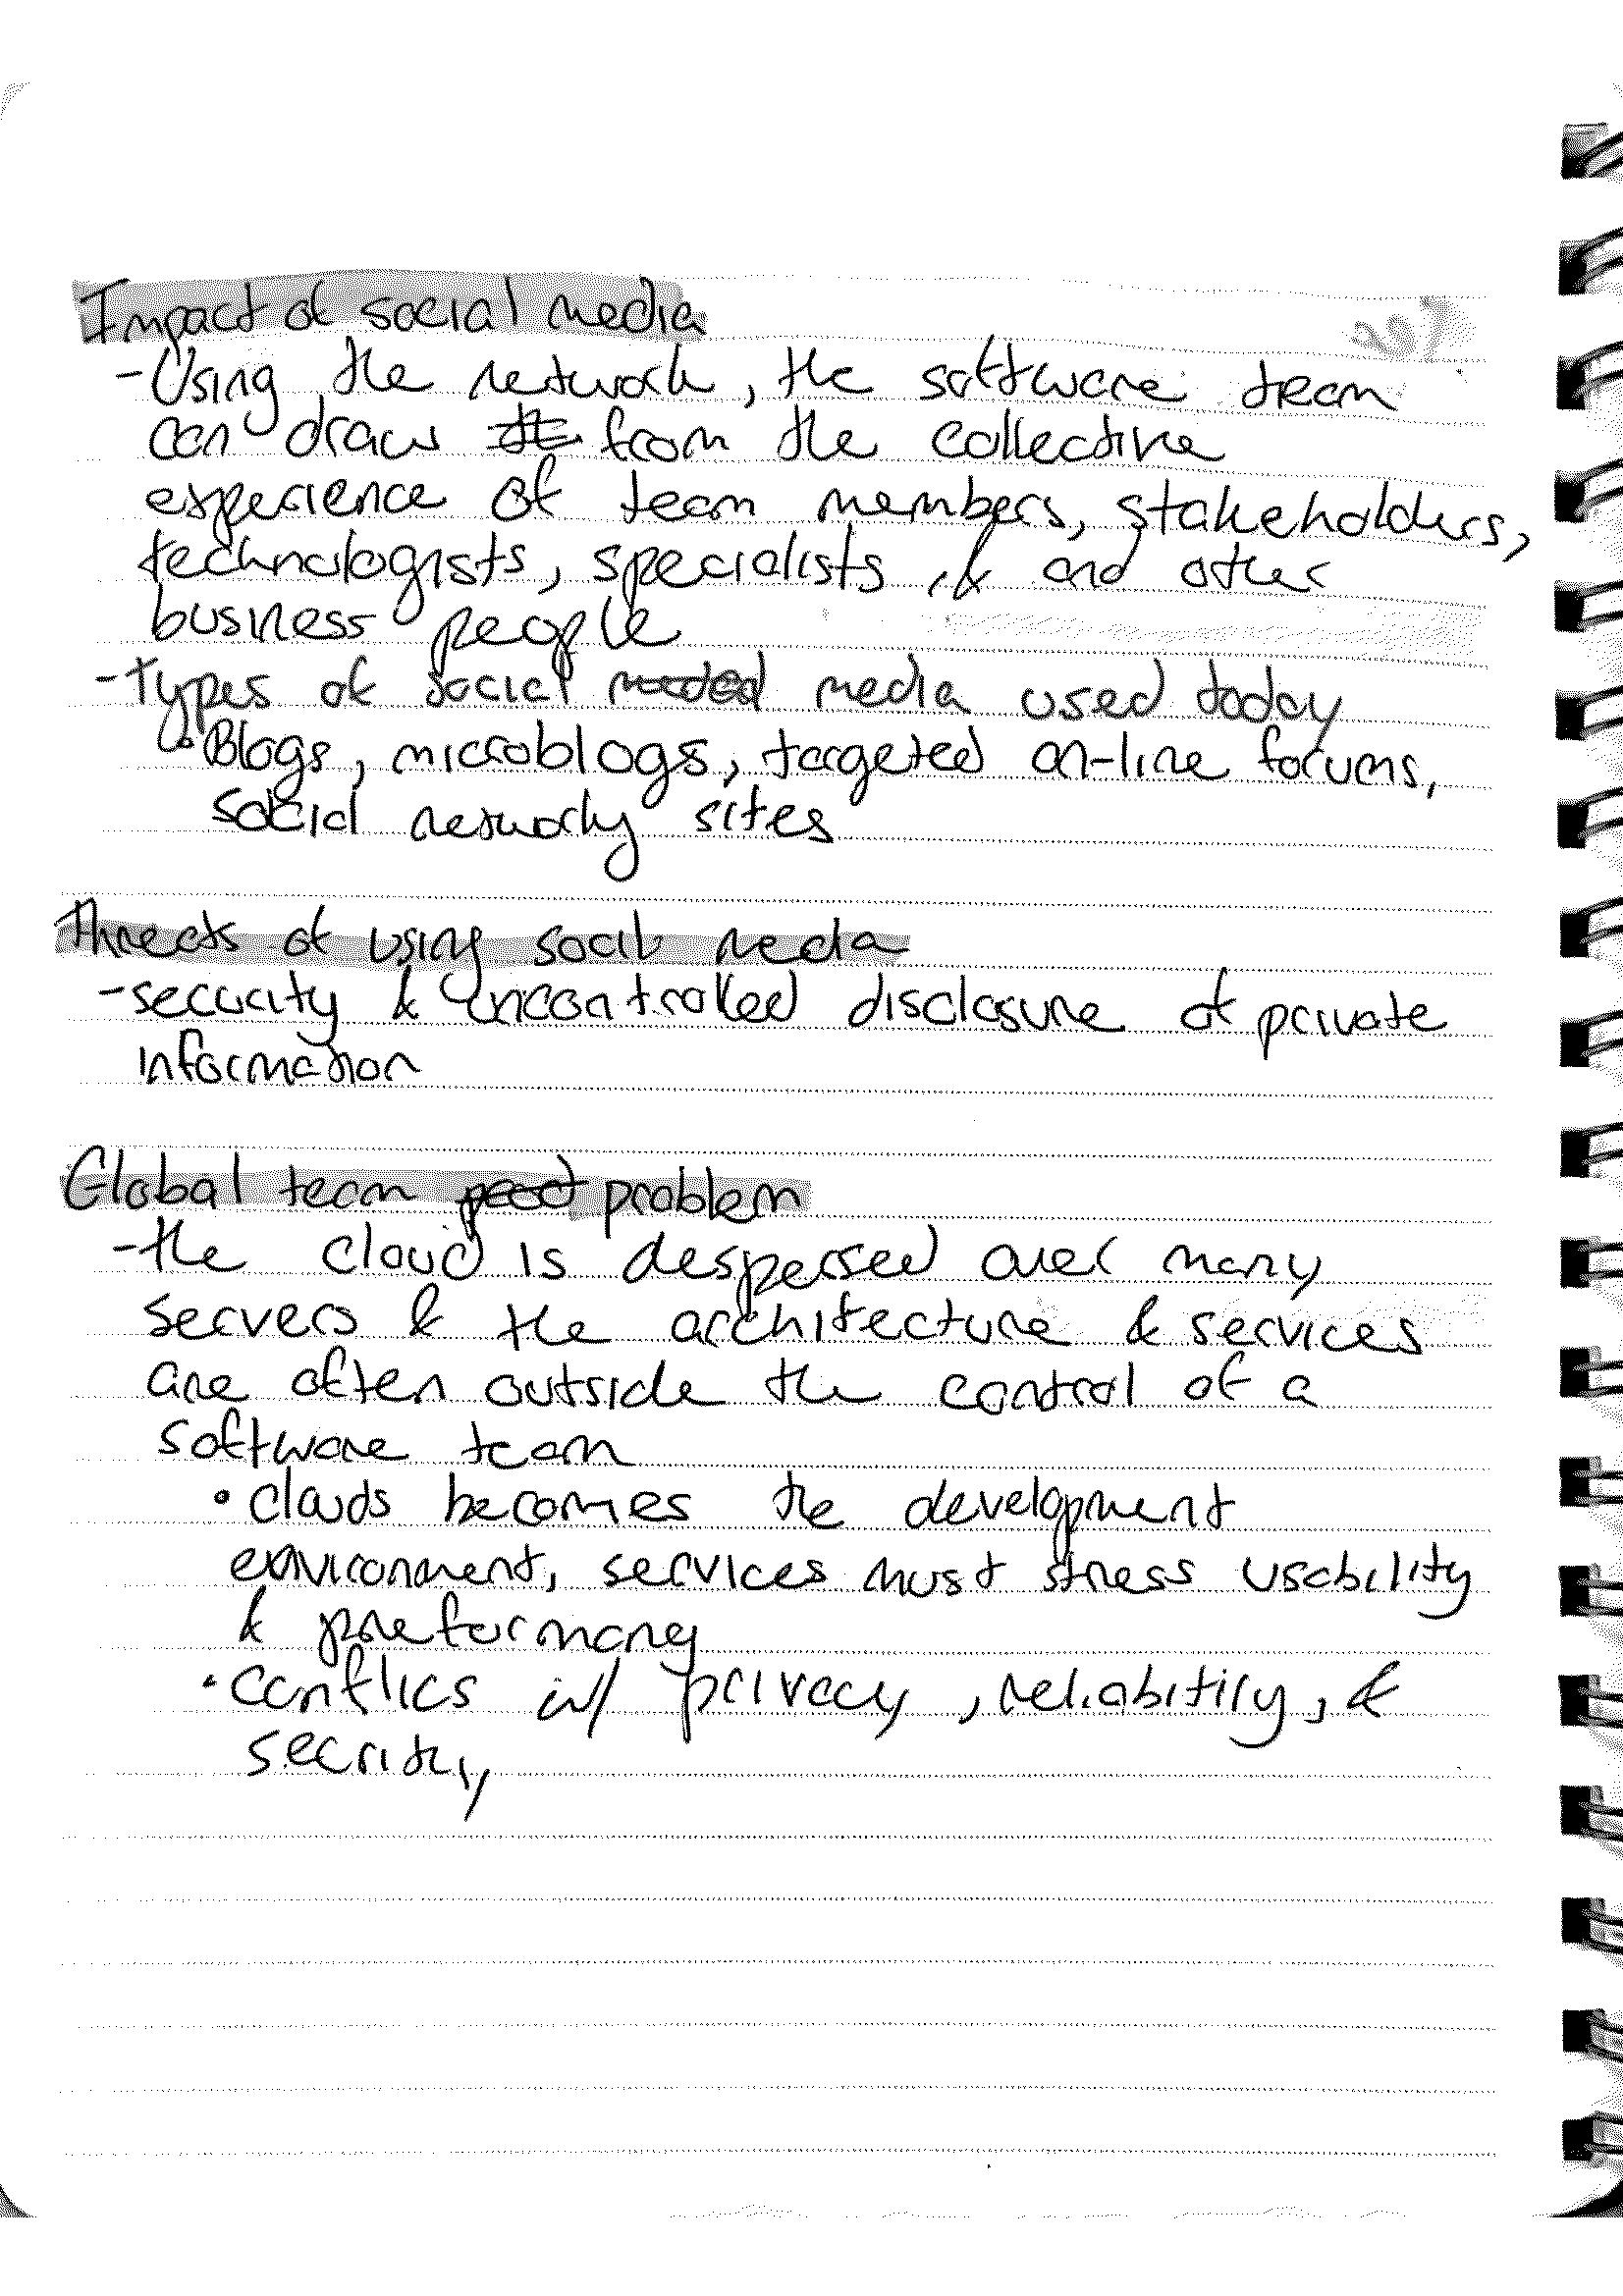 Impact of social media
- Using the network, the software team
can draw from the collective
experience of team members, stakeholders,
technologists, specialists, & and other
business people
- Types of social media used today
• Blogs, microblogs, targeted on-line forums,
social networky sites
Threats of using socil media
- security & uncontrolled disclosure of private
information
Global team problem
- the cloud is despersed over many
servers & the architecture & services
are often outside the control of a
software team
• clouds becomes the development
environment, services must stress usability
& preformancy
• conflics w/ privacy, reliability, &
secrity